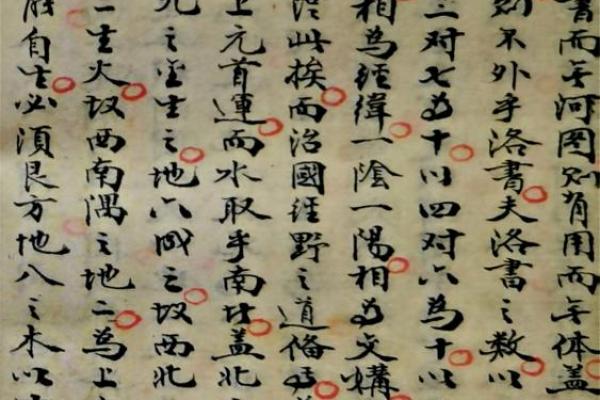 書而無河圖则有用而無体盖
则不外乎洛書夫洛書之数以
三对七为十以四对六為十以
相為経緯一陰一陽相為交媾
從此挨而治國経野之道俻焉
上元首運而水取乎南北盖北
九之金生之地六成之故西北
一生火故西南隅之地二為上
能自生必須艮方地八之木以